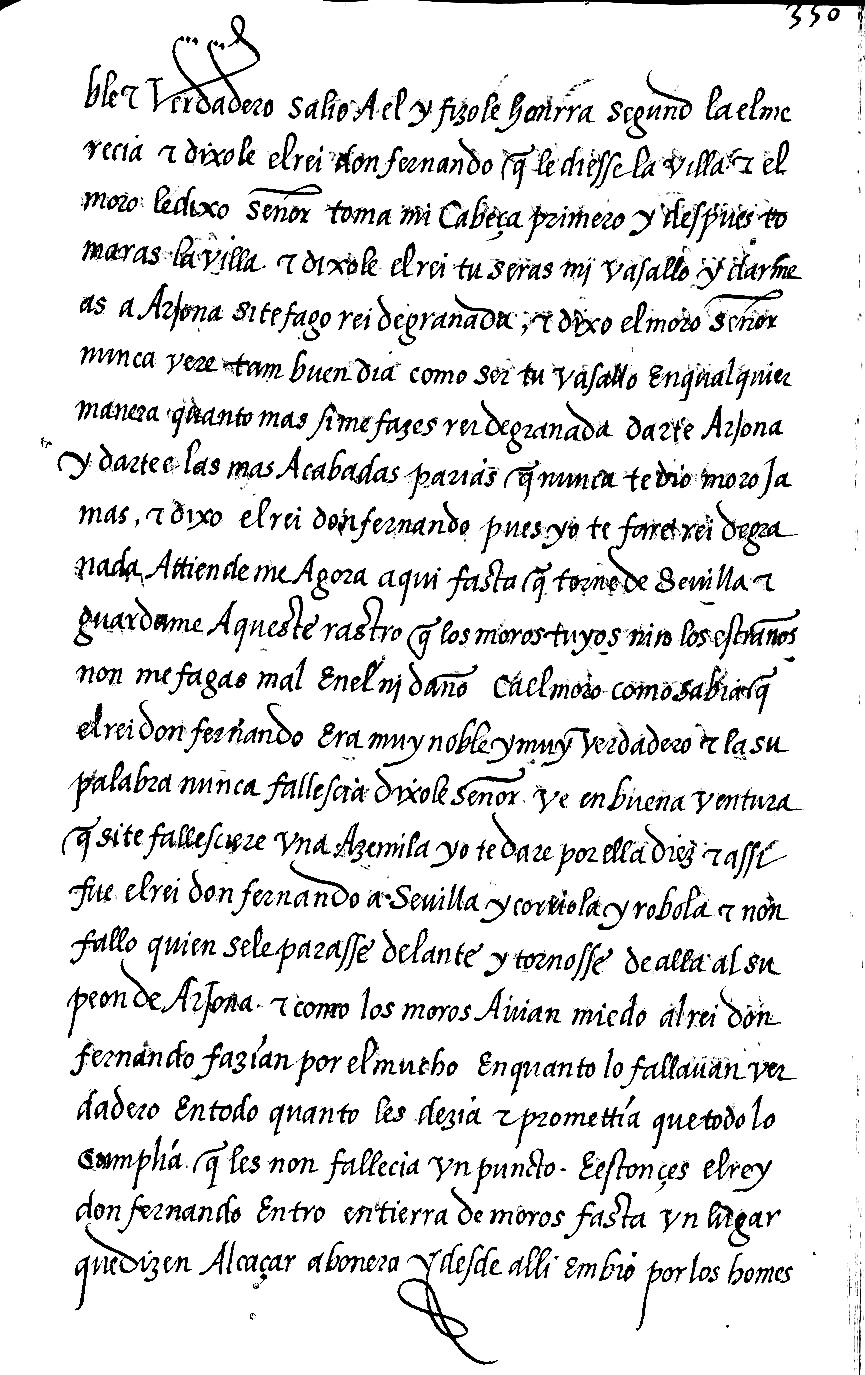 350
ble τ Verdadero salio A el y fizole honrra segund la el me
recia τ dixole el rei don fernando q̃ le diesse la villa τ el
moro le dixo señor toma mi Cabeça primero y despues to
maras la villa τ dixole el rei tu seras mi vasallo y darme
as a Arjona si te fago rei de granada, τ dixo el moro señor
nunca vere tam buen dia como ser tu vasallo En qualquier
manera quanto mas si me fazes rei de granada darte Arjona
y darte e las mas Acabadas parias q̃ nunca te dio moro Ja
mas, τ dixo el rei don fernando pues yo te fare rei de gra
nada Attiende me Agora aqui fasta q̃ torne de Sevilla τ
guardame Aqueste rastro q̃ los moros tuyos nin los estraños
non me fagas mal En el nj daño Ca el moro como sabia q̃
el rei don fernando Era muy noble y muy Verdadero τ la su
palabra nunca fallescia dixole señor ve en buena ventura
q̃ si te fallesciere vna Azemila yo te dare por ella diez τ assi
fue el rei don fernando a Sevilla y corriola y robola τ non
fallo quien se le parasse delante y tornosse de alla al su
peon de Arjona τ como los moros Auian miedo al rei don
fernando fazian por el mucho En quanto lo fallauan ver
dadero En todo quanto les dezia τ promettia que todo lo
Cumplia q̃ les non fallecia vn puncto. Eestonçes el rey
don fernando Entro en tierra de moros fasta vn lugar
que dizen Alcaçar abonera y desde alli Embio por los homes